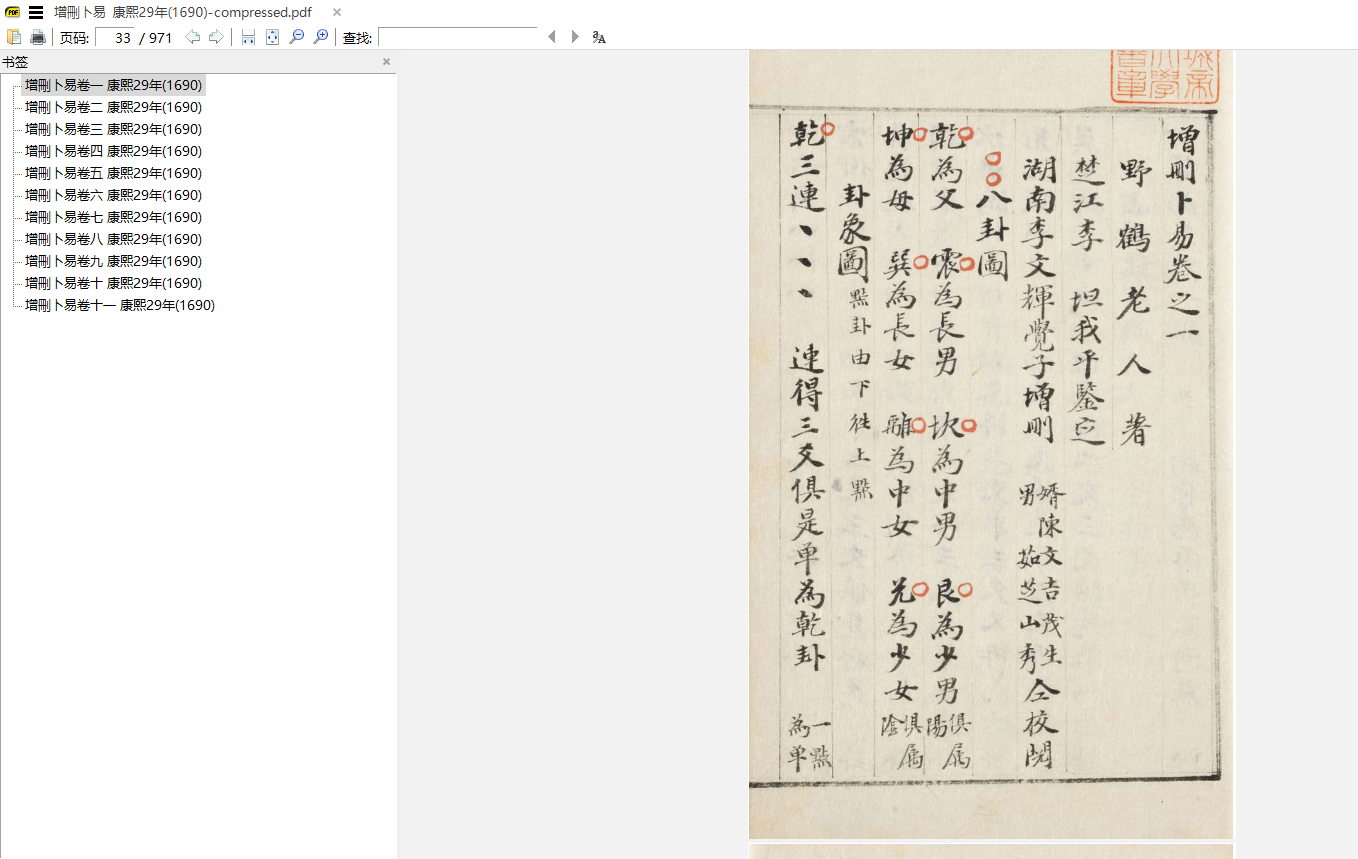 增刪卜易 康熙29年(1690)-compressed.pdf
页码: 33 / 971 查找:
书签
增刪卜易卷一 康熙29年(1690)
增刪卜易卷二 康熙29年(1690)
增刪卜易卷三 康熙29年(1690)
增刪卜易卷四 康熙29年(1690)
增刪卜易卷五 康熙29年(1690)
增刪卜易卷六 康熙29年(1690)
增刪卜易卷七 康熙29年(1690)
增刪卜易卷八 康熙29年(1690)
增刪卜易卷九 康熙29年(1690)
增刪卜易卷十 康熙29年(1690)
增刪卜易卷十一 康熙29年(1690)
增刪卜易卷之一
野鶴老人著
楚江李坦我平鑒定
湖南李文輝覺子增刪 婿陳文吉茂生 男茹芝山秀 仝校閱
八卦圖
乾為父 震為長男 坎為中男 艮為少男 俱属陽
坤為母 巽為長女 離為中女 兌為少女 俱属陰
卦象圖 點卦由下徃上點
乾三連丶丶丶 連得三爻俱是单為乾卦 一點為单